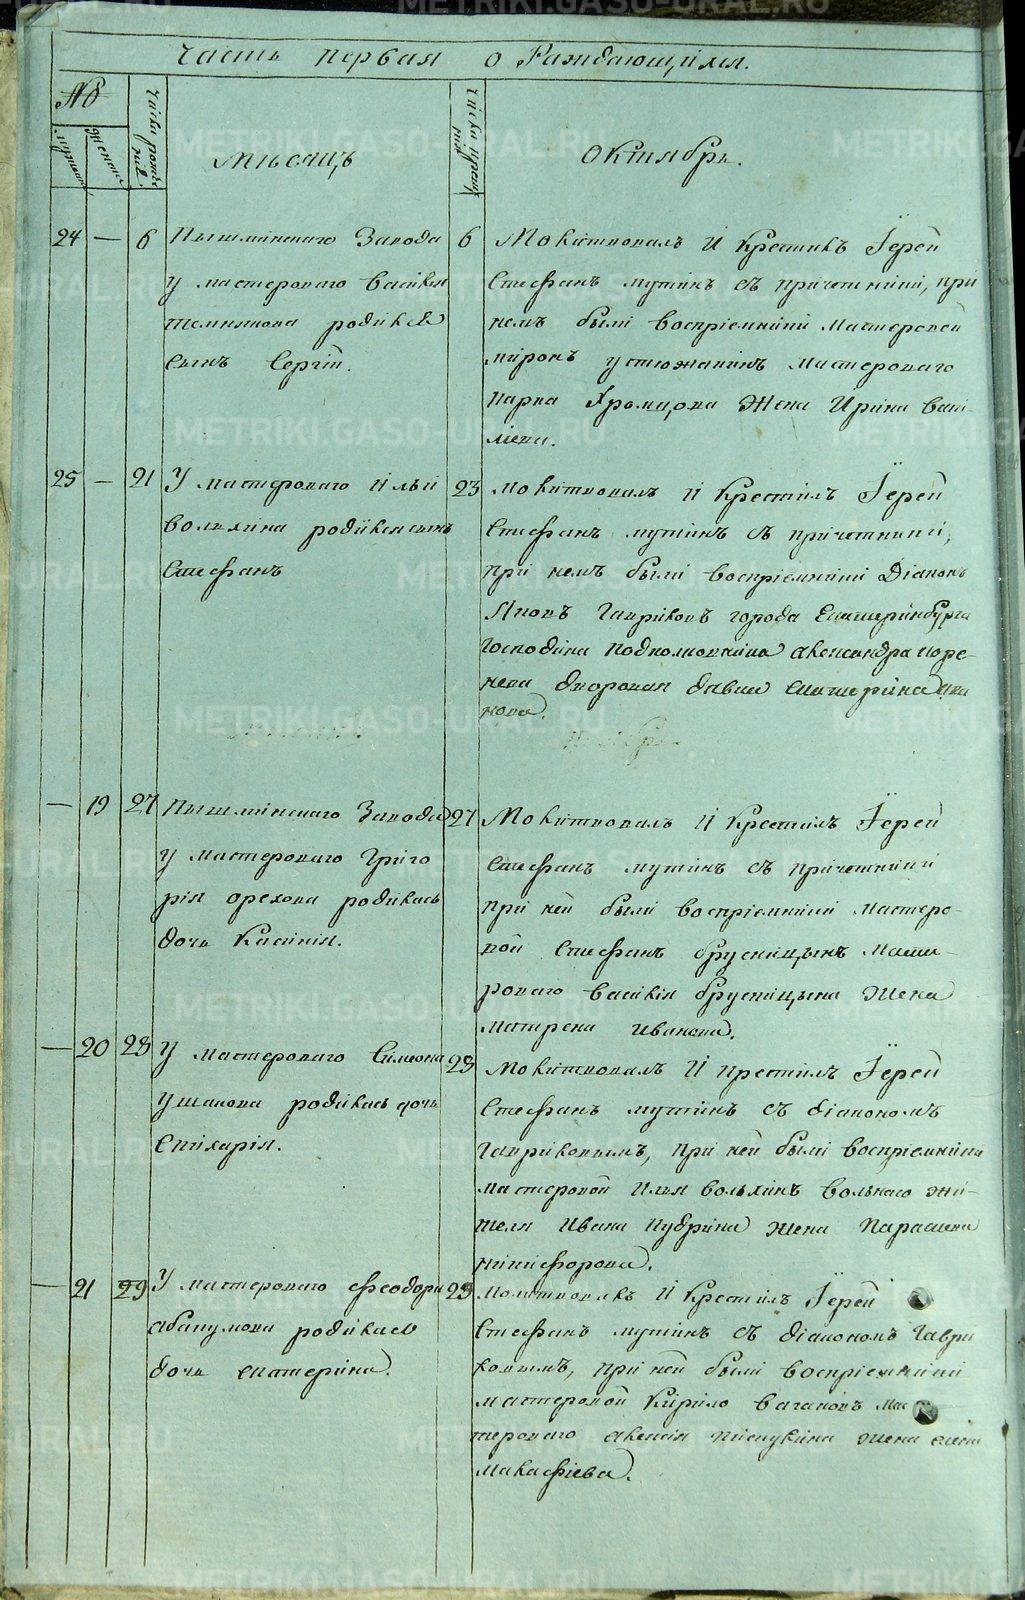 Часть первая о Раждающихся.
№
мужеска
женска
Числа рожденія
Мѣсяцъ
Числа крещенія
Октябрь.
24 — 6 Пышминскаго Завода
у мастероваго Василья
родился
сынъ Сергій.
6 Молитвовалъ и крестилъ Іерей
Стефанъ Мутинъ съ причетники, при
немъ были воспріемники мастеровой
Миронъ Устюжанинъ мастероваго
Карпа Хромцова жена Ирина Васи-
льева.
25 — 21 У мастероваго Ильи
Вольхина родился сынъ
Стефанъ
23 Молитвовалъ и крестилъ Іерей
Стефанъ Мутинъ съ причетники,
при немъ были воспріемники Діаконъ
Яковъ Гавриковъ города Екатеринбурга
Господина Подполковника Александра
дворовая девка Екатерина Ива
нова.
— 19 27 Пышминскаго Завода
у мастероваго Григо
рія Орехова родилась
дочь Ксенія.
27 Молитвовалъ и крестилъ Іерей
Стефанъ Мутинъ съ причетники
при ней были воспріемники мастеро-
вой Стефанъ Брусницынъ масте-
роваго Василія Брусницына жена
Матрена Иванова.
— 20 28 У мастероваго Симеона
Ушакова родилась дочь
Глихарія.
28 Молитвовалъ и крестилъ Іерей
Стефанъ Мутинъ съ діакономъ
Гавриковымъ, при ней были воспріемники
мастеровой Илья Вольхинъ вольнаго жи-
теля Ивана Кубрина жена Парасковья
Никифорова.
— 21 29 У мастероваго Феодора
Абакумова родилась
дочь Екатерина.
29 Молитвовалъ и крестилъ Іерей
Стефанъ Мутинъ съ діакономъ Гаври
ковымъ, при ней были воспріемники
мастеровой Кирило Вагановъ мас
тероваго Алексія Пискулина жена Елена
Макафіева.
METRIKI.GASO-URAL.RU